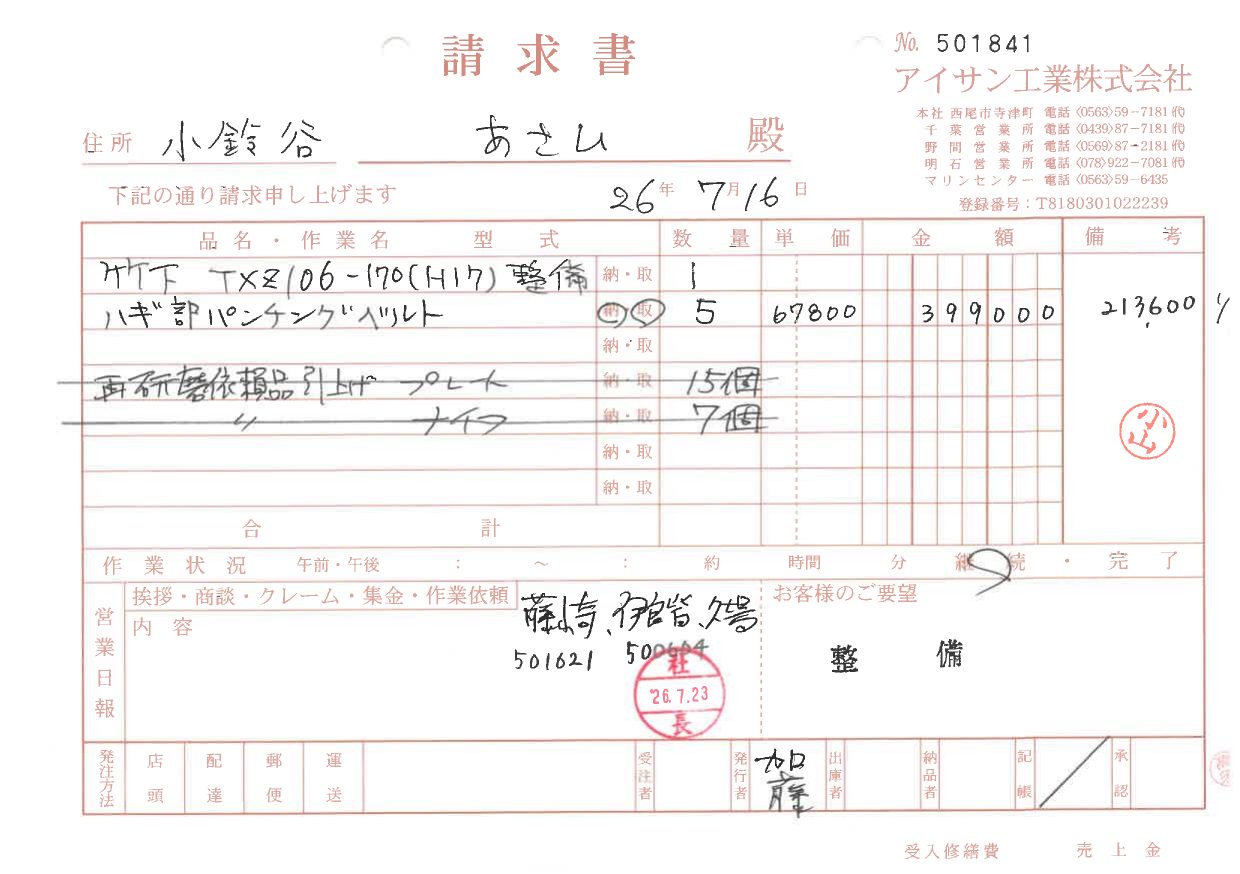 請求書
No. 501841
アイサン工業株式会社
本社 西尾市寺津町 電話〈0563〉59-7181㈹
千葉営業所 電話〈0439〉87-7181㈹
野間営業所 電話〈0569〉87-2181㈹
明石営業所 電話〈078〉922-7081㈹
マリンセンター 電話〈0563〉59-6435
登録番号:T8180301022239
住所 小鈴谷 あさひ 殿
下記の通り請求申し上げます
26年 7月16日
品名・作業名 型式 数量 単価 金額 備考
竹下 TXZ106-170(H17) 整備 納・取 1
ハギ部パンチングベルト 納・取 5 67800 399000 213600
納・取
再研磨依頼品引上げ プレート 納・取 15個
〃 ナイフ 納・取 7個
小山
納・取
納・取
合計
作業状況 午前・午後 : ~ : 約 時間 分 継続・完了
営業日報
挨拶・商談・クレーム・集金・作業依頼
内容
藤崎、伊官皆、久嶋
501621 500604
社長
'26.7.23
お客様のご要望
整備
発注方法 店頭 配達 郵便 運送 受注者 発行者 加藤 出庫者 納品者 記帳 承認
受入修繕費 売上金